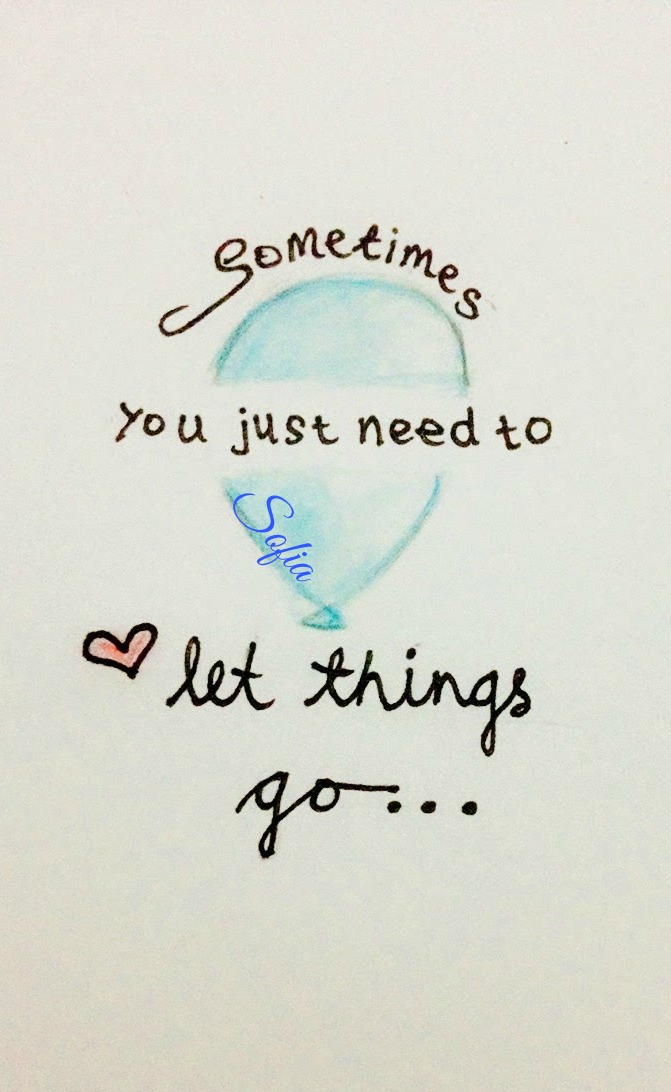 Sometimes
You just need to
Sofia
let things
go...